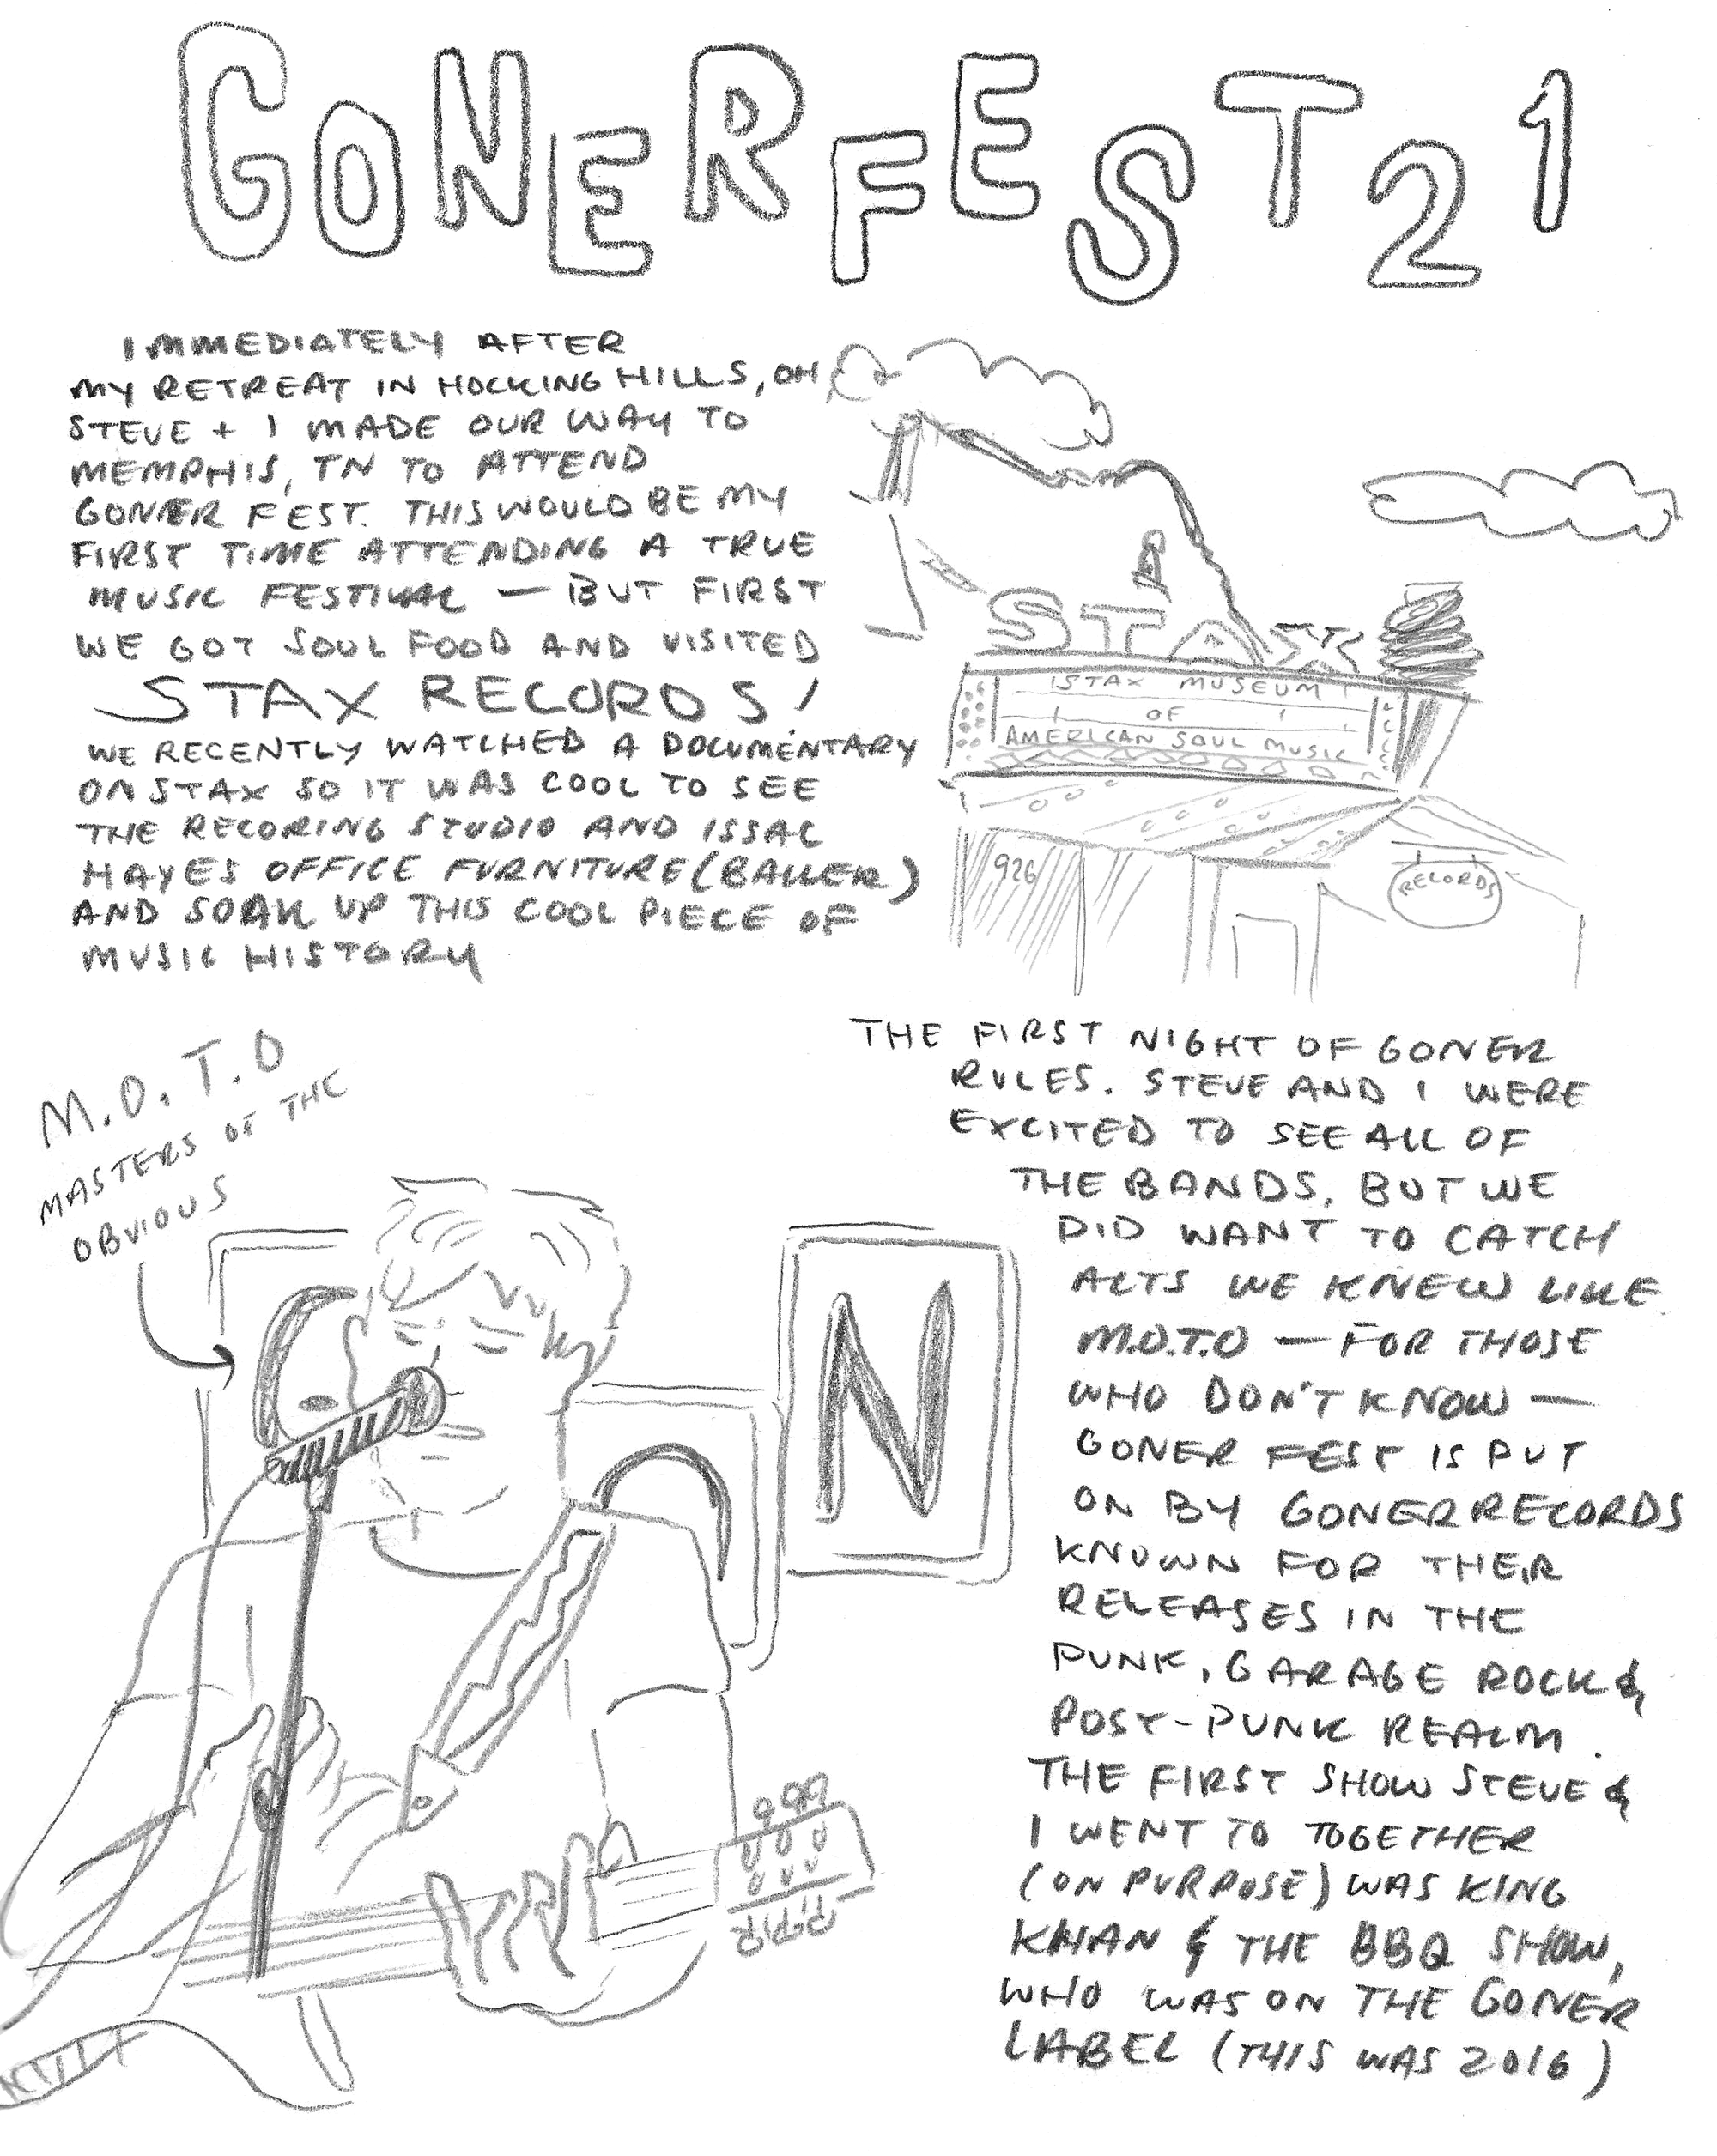 GONERFEST 21
IMMEDIATELY AFTER
MY RETREAT IN HOCKING HILLS, OH
STEVE + I MADE OUR WAY TO
MEMPHIS, TN TO ATTEND
GONER FEST. THIS WOULD BE MY
FIRST TIME ATTENDING A TRUE
MUSIC FESTIVAL — BUT FIRST
WE GOT SOUL FOOD AND VISITED
STAX RECORDS!
WE RECENTLY WATCHED A DOCUMENTARY
ON STAX SO IT WAS COOL TO SEE
THE RECORING STUDIO AND ISSAC
HAYES OFFICE FURNITURE (BALLER)
AND SOAK UP THIS COOL PIECE OF
MUSIC HISTORY
STAX
STAX MUSEUM
OF
AMERICAN SOUL MUSIC
926
RECORDS
M.O.T.O
MASTERS OF THE
OBVIOUS
N
THE FIRST NIGHT OF GONER
RULES. STEVE AND I WERE
EXCITED TO SEE ALL OF
THE BANDS, BUT WE
DID WANT TO CATCH
ACTS WE KNEW LIKE
M.O.T.O — FOR THOSE
WHO DON'T KNOW —
GONER FEST IS PUT
ON BY GONER RECORDS
KNOWN FOR THEIR
RELEASES IN THE
PUNK, GARAGE ROCK &
POST-PUNK REALM.
THE FIRST SHOW STEVE &
I WENT TO TOGETHER
(ON PURPOSE) WAS KING
KHAN & THE BBQ SHOW,
WHO WAS ON THE GONER
LABEL (THIS WAS 2016)